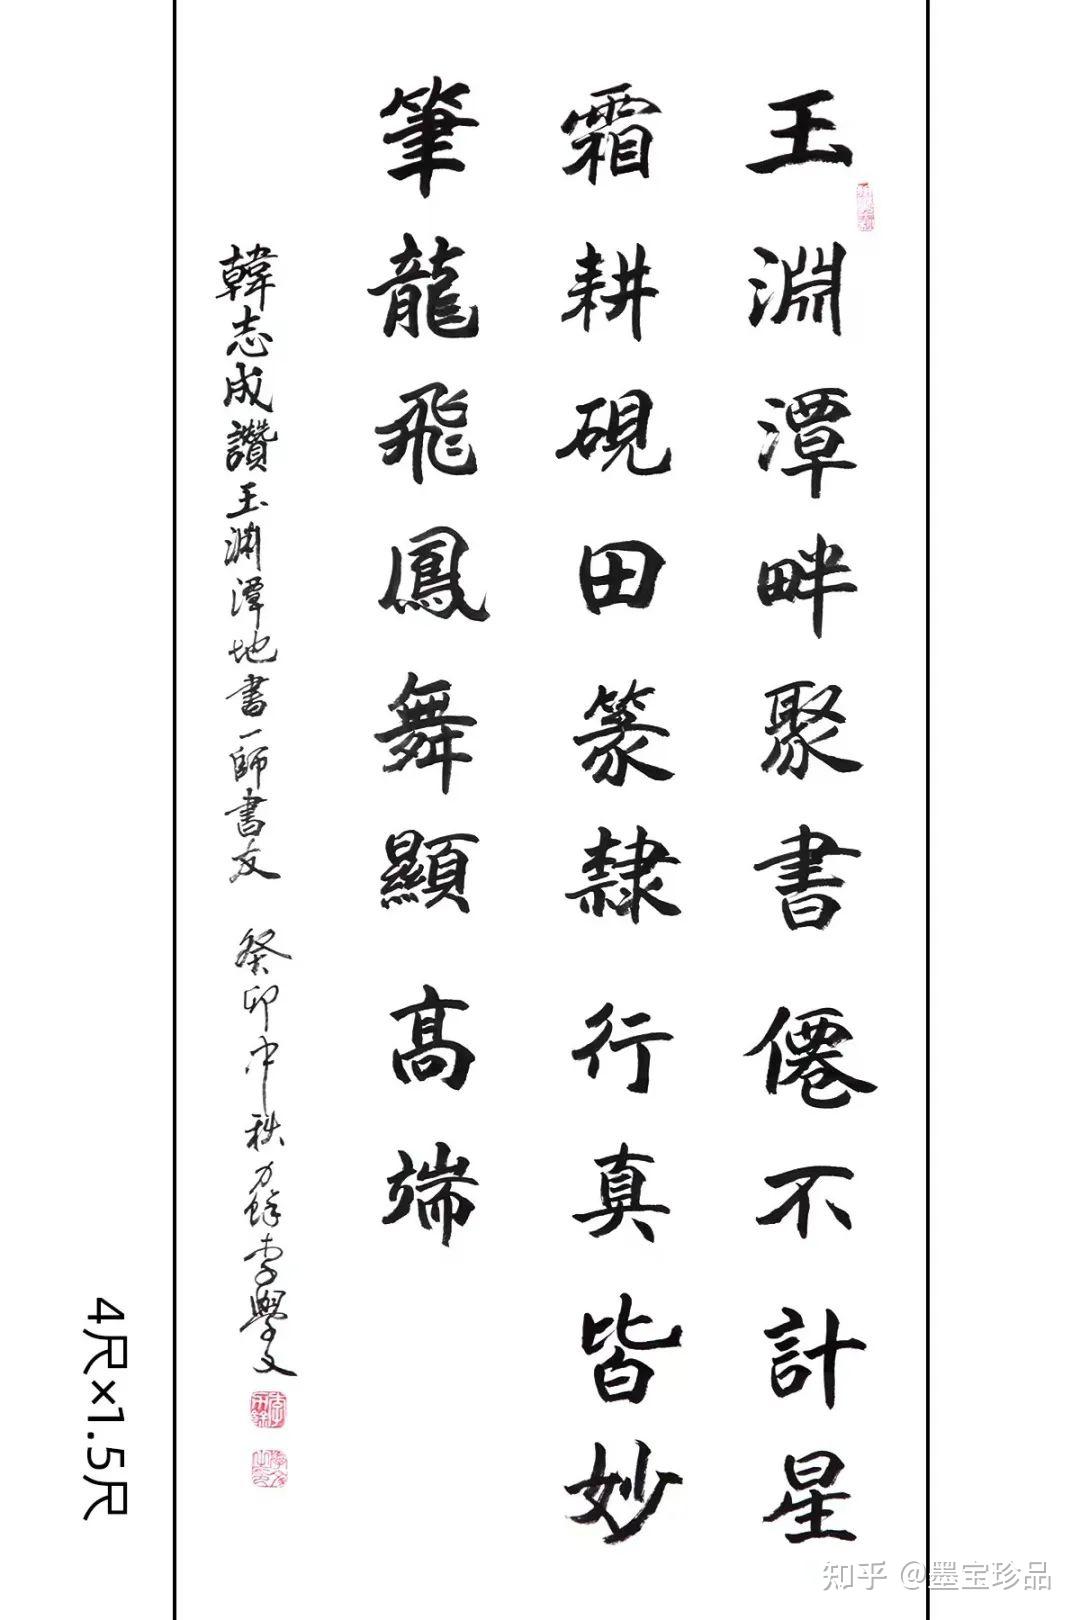 王淵潭畔聚書僊不計星
霜耕硯田篆隸行真皆妙
筆龍飛鳳舞顯髙端
韓志成讚玉淵潭地書一師書友 癸卯中秋力餘李學文
4尺×1.5尺
知乎 @墨宝珍品